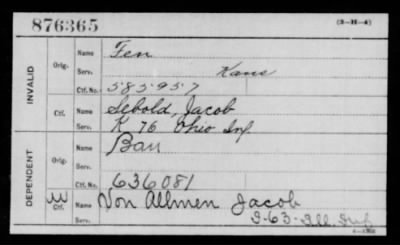 876365 (3-H-4)
INVALID
Orig. Name Fen
Serv. Kans
Ctf. No. 585957
Ctf. Name Sebold, Jacob
Serv. K 76 Ohio Inf.
DEPENDENT
Orig. Name Bau
Serv.
Ctf. No. 636081
W Ctf. Name Von Allmen Jacob
Serv. I-63-Ill. Inf